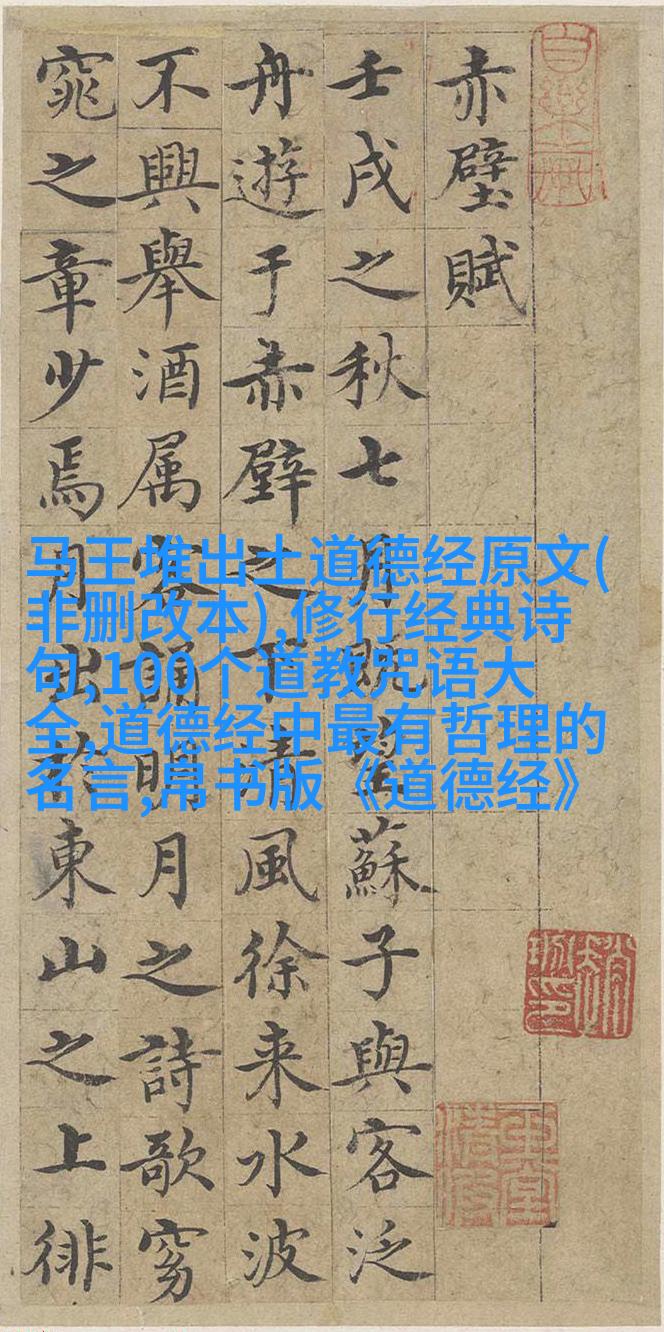 赤壁賦
壬戌之秋七月既望蘇子與客泛
舟遊于赤壁之下清風徐来水波
不興舉酒属客誦明月之詩歌窈
窕之章少焉月出於東山之上徘
马王堆出土道德经原文(
非删改本),修行经典诗
句,100个道教咒语大
全,道德经中最有哲理的
名言,帛书版《道德经》